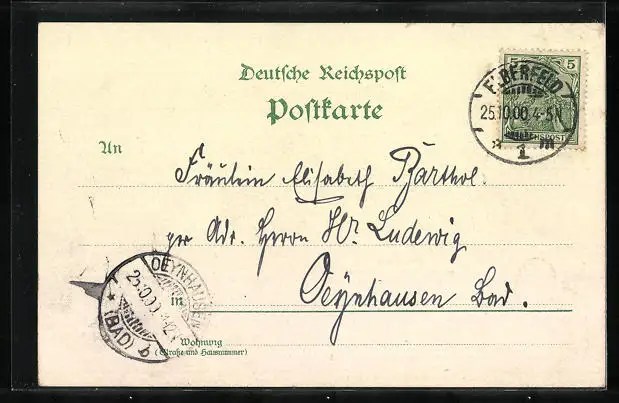 Deutsche Reichspost
Postkarte
5 5
REICHSPOST
ELBERFELD
25.10.00. 4-5N
* 1 m
An
Fräulein Elisabeth Barthol.
per Adr. Herrn Wr. Ludewig
in Oeynhausen Bad.
OEYNHAUSEN
25.10.00
* (BAD) b
Wohnung
(Straße und Hausnummer)